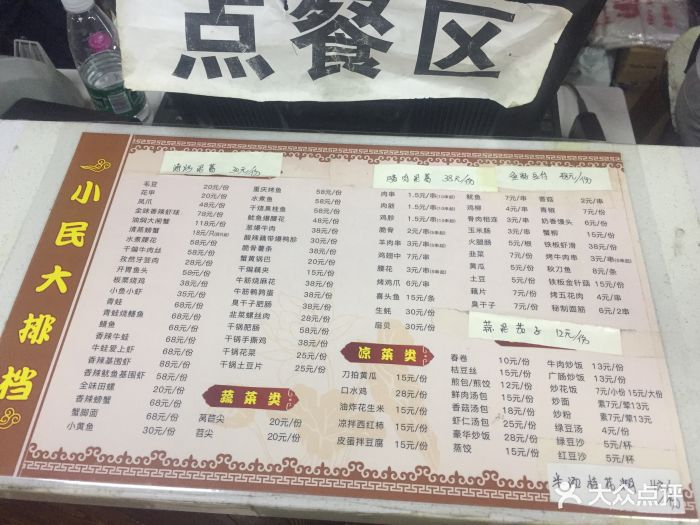 点餐区
小民大排档
30元/份
38元/份
毛豆 20元/份
花甲 20元/份
凤爪 48元/份
全味香辣虾 78元/份
118元/份
清蒸螃蟹
水煮腰花 68元/份
干煸牛肉丝
孜然牙签肉
开胃鱼头
板栗烧鸡
小鱼小虾 35元/份
青蛙 68元/份
青蛙烧鳝鱼 68元/份
鳝鱼 68元/份
香辣牛蛙 68元/份
牛蛙爱上虾 68元/份
香辣基围虾 68元/份
香辣鱿鱼基围虾 68元/份
全味田螺 20元/份
香辣螃蟹 68元/份
蟹脚面 68元/份
小黄鱼 30元/份
重庆烤鱼 58元/份
水煮鱼 58元/份
干烧臭桂鱼 58元/份
鱿鱼爆腰花 58元/份
葱爆牛肉 38元/份
酸辣藕带爆鸭胗 30元/份
脆骨薯条 30元/份
蟹黄锅巴 20元/份
干煸藕夹 20元/份
牛筋烧鸡爪 35元/份
牛筋鹌鹑蛋 35元/份
臭干子肥肠 35元/份
韭菜螺丝肉 28元/份
干锅肥肠 38元/份
干锅手撕鸡 38元/份
干锅花菜 25元/份
干锅土豆片 25元/份
蔬菜类
莴苣尖 20元/份
苕尖 20元/份
肉串 1.5元/串
肉筋 1.5元/串
鸡胗 1.5元/串
脆骨 2元/串
羊肉串 3元/串
鸡翅中 7元/串
腰花 3元/串
烤鸡爪 6元/串
喜头鱼 15元/条
生蚝 30元/份
扇贝 30元/份
凉菜类
刀拍黄瓜 15元/份
口水鸡 28元/份
油炸花生米 15元/份
凉拌西红柿 15元/份
皮蛋拌豆腐 15元/份
鱿鱼 7元/串
鸡柳 4元/串
骨肉相连 3元/串
玉米肠 3元/串
火腿肠 5元/串
韭菜
黄瓜
土豆
藕片
臭干子
香菇 2元/串
青椒 7元/份
奶香馒头 6元/份
蟹柳 15元/份
铁板虾滑 38元/份
烤牛肉串 3元/串
秋刀鱼 8元/条
铁板金针菇 15元/份
烤五花肉 4元/串
秘制面筋
12元/份
春卷 10元/份
桔豆丝 15元/份
煎包/煎饺 12元/份
鲜肉汤包 15元/份
香菇汤包 18元/份
虾仁汤包 25元/份
豪华炒饭 28元/份
蒸饺 15元/份
牛肉炒饭 13元/份
广肠炒饭 13元/份
炒花饭 7元/小份 15元/大份
炒面 素7元/荤13元
炒粉 素7元/荤13元
绿豆汤 4元/份
绿豆沙 5元/杯
红豆沙 5元/杯
大众点评